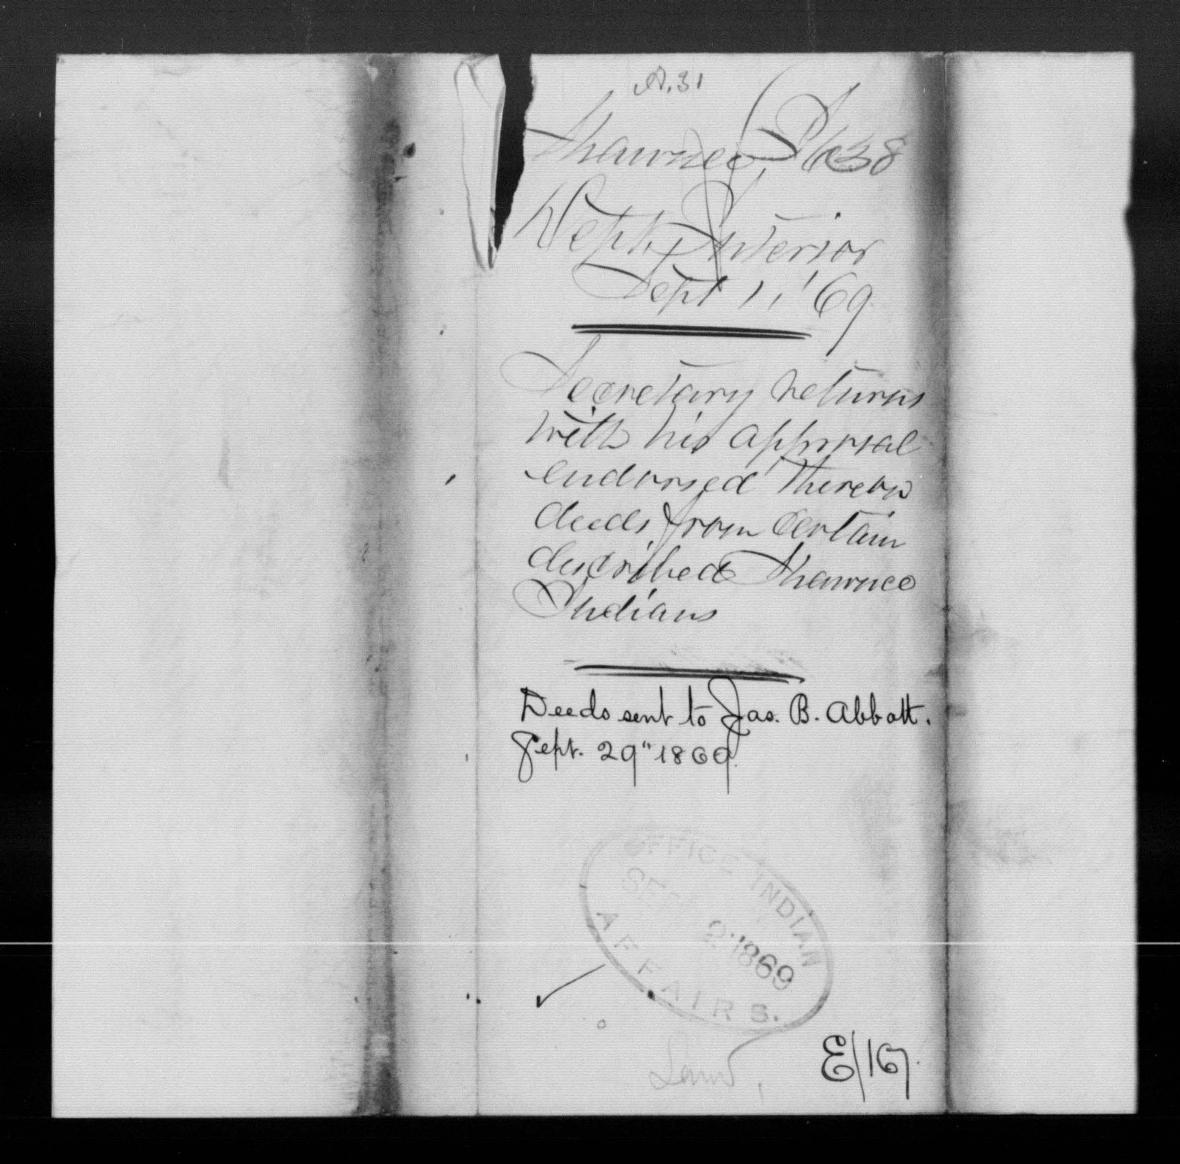 A. 31
Shawnee, I 638
Dept. Interior
Sept 1, '69
Secretary returns
with his approval
endorsed thereon
deeds from certain
described Shawnee
Indians
Deeds sent to Jas. B. Abbott.
Sept. 29" 1869.
OFFICE INDIAN
SEP 2 1869
AFFAIRS.
Land,
E/167.